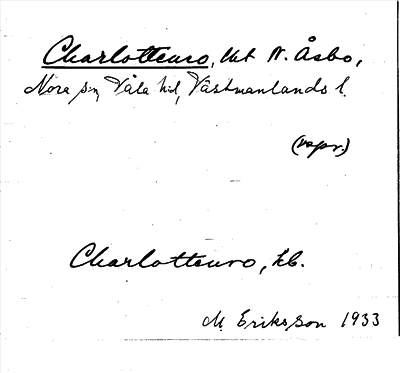 Charlottenro, lht N. Åsbo,
Nora sn, Våla hd, Västmanlands l.
(uspr.)
Charlottenro, hb.
M. Eriksson 1933